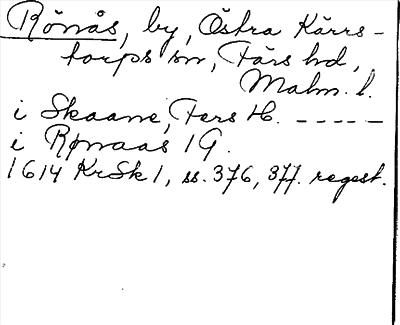 Rönås, by, Östra Kärrs-
torps sn, Färs hd,
Malm. l.
i Skaane, Fers H. -----
i Rønaas 1 G.
1614 KrSk 1, ss. 376, 377. regest.